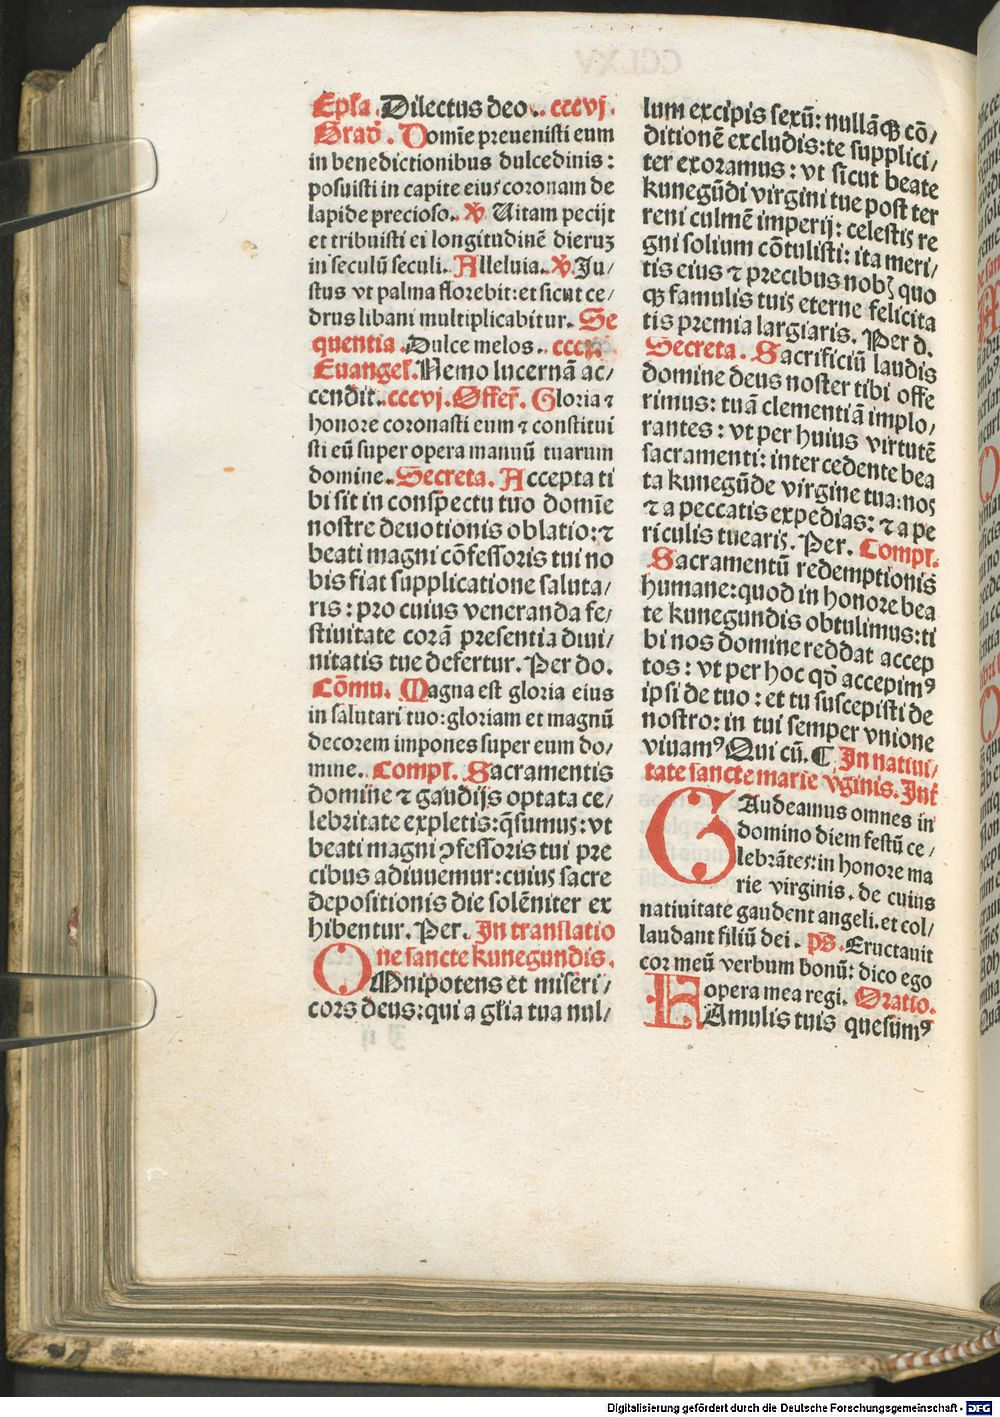 Ep̄la. Dilectus deo. cccvj.
Grad̄. Domīe preuenisti eum
in benedictionibus dulcedinis:
posuisti in capite eiuꝰ coronam de
lapide precioso. ℣ Uitam pecijt
et tribuisti ei longitudinē dieruꝫ
in seculū seculi. Alleluia. ℣. Ju/
stus vt palma florebit: et sicut ce/
drus libani multiplicabitur. Se
quentia. Dulce melos.
Euangel̄. Nemo lucernā ac/
cendit. cccvj. Offer̄. Gloria ⁊
honore coronasti eum ⁊ constitui
sti eū super opera manuū tuarum
domine. Secreta. Accepta ti
bi sit in conspectu tuo domīe
nostre deuotionis oblatio: ⁊
beati magni cōfessoris tui no
bis fiat supplicatione saluta/
ris: pro cuius veneranda fe/
stiuitate corā presentia diui/
nitatis tue defertur. Per do.
Cōmu. Magna est gloria eius
in salutari tuo: gloriam et magnū
decorem impones super eum do/
mine. Compl̄. Sacramentis
domine ⁊ gaudijs optata ce/
lebritate expletis: q̄sumus: vt
beati magni ꝯfessoris tui pre
cibus adiuuemur: cuius sacre
depositionis die solēniter ex
hibentur. Per. In translatio
ne sancte kunegundis.
OMnipotens et miseri/
cors deus: qui a gl̄ia tua nul/
lum excipis sexū: nullāqꝫ cō/
ditionē excludis: te supplici/
ter exoramus: vt sicut beate
kunegūdi virgini tue post ter
reni culmē imperij: celestis re
gni solium cōtulisti: ita meri/
tis eius ⁊ precibus nobꝭ quo
qꝫ famulis tuis eterne felicita
tis premia largiaris. Per d.
Secreta. Sacrificiū laudis
domine deus noster tibi offe
rimus: tuā clementiā implo/
rantes: vt per huius virtutē
sacramenti: intercedente bea
ta kunegūde virgine tua: nos
⁊ a peccatis expedias: ⁊ a pe
riculis tuearis. Per. Compl̄.
Sacramentū redemptionis
humane: quod in honore bea
te kunegundis obtulimus: ti
bi nos domine reddat accep
tos: vt per hoc qd̄ accepimꝰ
ipsi de tuo: et tu suscepisti de
nostro: in tui semper vnione
viuamꝰ Qui cū. ¶ In natiui/
tate sancte marie v̄ginis. Int̄
GAudeamus omnes in
domino diem festū ce/
lebrātes: in honore ma
rie virginis. de cuius
natiuitate gaudent angeli. et col/
laudant filiū dei. ps. Eructauit
cor meū verbum bonū: dico ego
opera mea regi. Oratio.
FAmulis tuis quesumꝰ
Digitalisierung gefördert durch die Deutsche Forschungsgemeinschaft - DFG